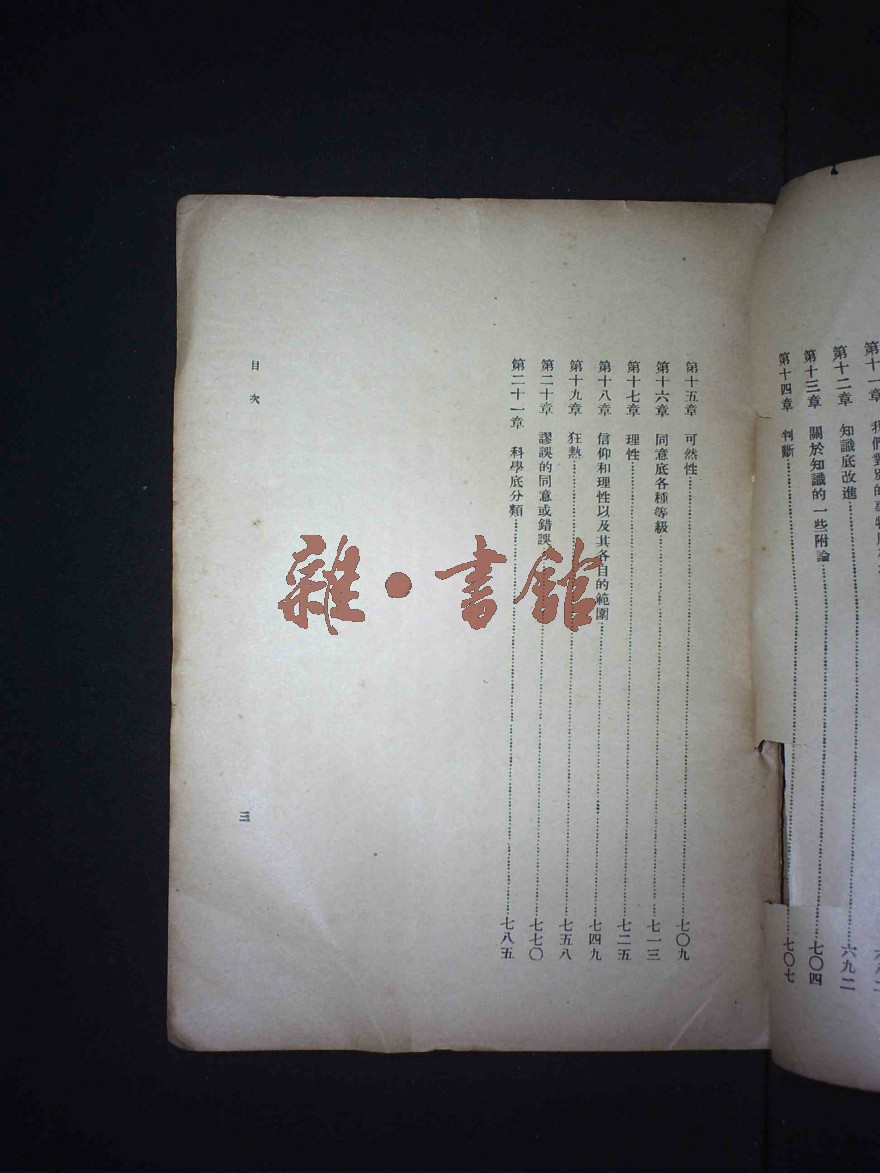 第十一章 我們對別的事物
第十二章 知識底改進……六九二
第十三章 關於知識的一些附論……七〇四
第十四章 判斷……七〇七
第十五章 可然性……七〇九
第十六章 同意底各種等級……七一三
第十七章 理性……七二五
第十八章 信仰和理性以及其各自的範圍……七四九
第十九章 狂熱……七五八
第二十章 謬誤的同意或錯誤……七七〇
第二十一章 科學底分類……七八五
目次
三
雜·書館